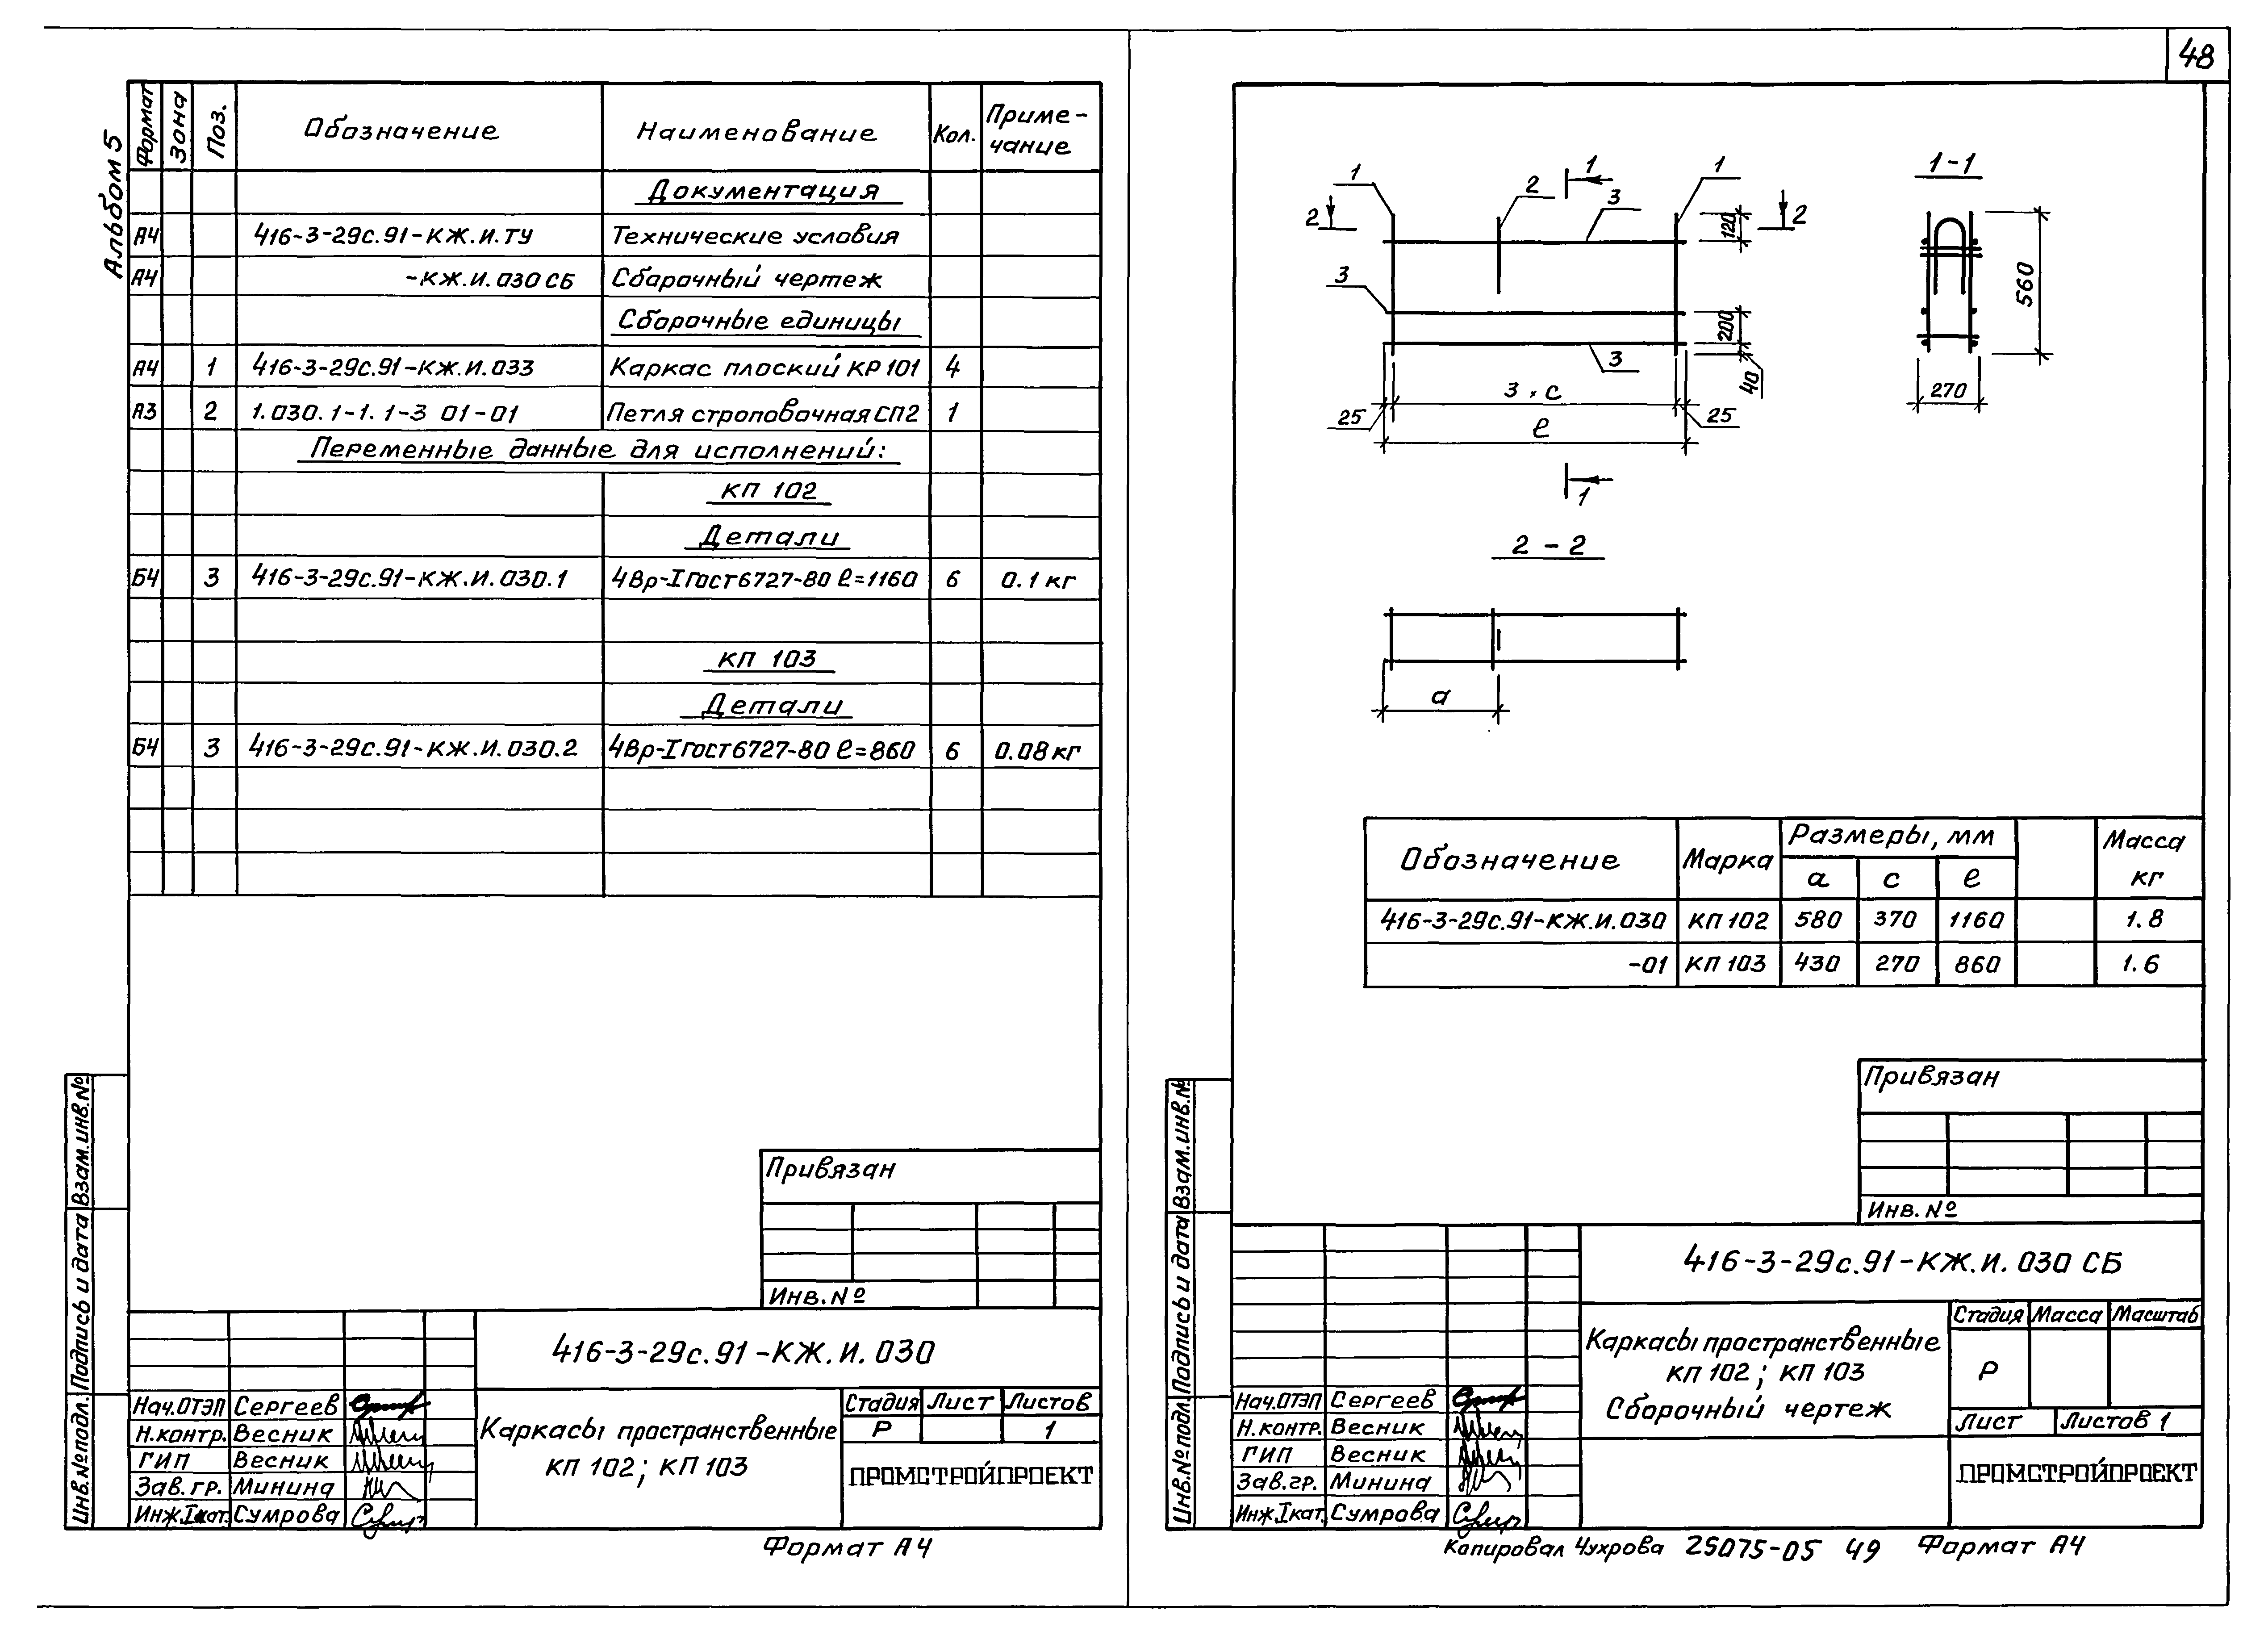 48
Альбом 5
Формат Зона Поз. Обозначение Наименование Кол. Приме-
чание
Документация
А4 416-3-29с.91-КЖ.И.ТУ Технические условия
А4 -КЖ.И.030 СБ Сборочный чертеж
Сборочные единицы
А4 1 416-3-29с.91-КЖ.И.033 Каркас плоский КР 101 4
А3 2 1.030.1-1.1-3 01-01 Петля строповочная СП2 1
Переменные данные для исполнений:
КП 102
Детали
Б4 3 416-3-29с.91-КЖ.И.030.1 4Вр-I ГОСТ 6727-80 ℓ=1160 6 0.1 кг
КП 103
Детали
Б4 3 416-3-29с.91-КЖ.И.030.2 4Вр-I ГОСТ 6727-80 ℓ=860 6 0.08 кг
Привязан
Инв. №
416-3-29с.91-КЖ.И.030
Нач.ОТЭП Сергеев
Н.контр. Весник
ГИП Весник
Зав.гр. Минина
Инж.Iкат. Сумрова
Каркасы пространственные
КП 102; КП 103
Стадия Лист Листов
Р 1
ПРОМСТРОЙПРОЕКТ
Взам.инв.№
Подпись и дата
Инв.№ подл.
Формат А4
1 2 1 1 1-1
2 3 120 2
3 560
200
3 40
3 × с 270
25 25
ℓ
1
2-2
а
Обозначение Марка Размеры, мм Масса
а с ℓ кг
416-3-29с.91-КЖ.И.030 КП 102 580 370 1160 1.8
-01 КП 103 430 270 860 1.6
Привязан
Инв. №
416-3-29с.91-КЖ.И.030 СБ
Нач.ОТЭП Сергеев
Н.контр. Весник
ГИП Весник
Зав.гр. Минина
Инж.Iкат. Сумрова
Каркасы пространственные
КП 102; КП 103
Сборочный чертеж
Стадия Масса Масштаб
Р
Лист Листов 1
ПРОМСТРОЙПРОЕКТ
Взам.инв.№
Подпись и дата
Инв.№ подл.
Копировал Чухрова 25075-05 49 Формат А4